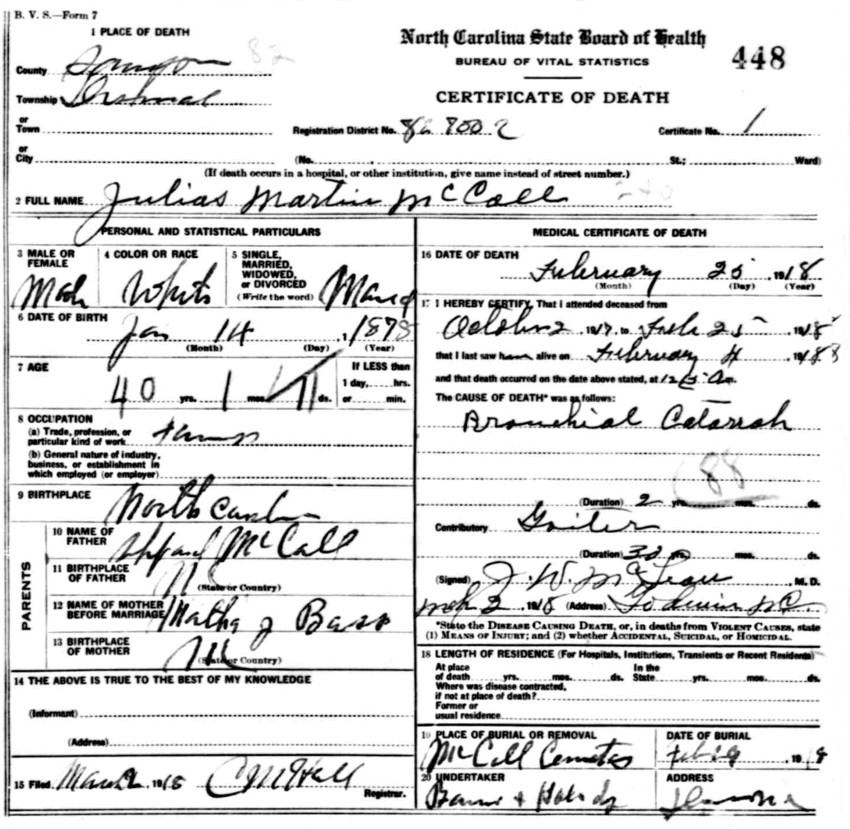 B. V. S.—Form 7
1 PLACE OF DEATH
82
North Carolina State Board of Health
BUREAU OF VITAL STATISTICS
448
CERTIFICATE OF DEATH
County Sampson
Township Dismal
or
Town
Registration District No. 82 800 2
Certificate No. 1
or
City
(No. St.; Ward)
(If death occurs in a hospital, or other institution, give name instead of street number.)
2 FULL NAME Julias Martin McCall
PERSONAL AND STATISTICAL PARTICULARS
3 MALE OR FEMALE
4 COLOR OR RACE White
5 SINGLE, MARRIED, WIDOWED, or DIVORCED
(Write the word)
6 DATE OF BIRTH
Jan 14, 1878
(Month) (Day) (Year)
7 AGE
40 yrs. 1 mos. 11 ds.
If LESS than
1 day, hrs.
or min.
8 OCCUPATION
(a) Trade, profession, or
particular kind of work
(b) General nature of industry,
business, or establishment in
which employed (or employer)
9 BIRTHPLACE North Carolina
PARENTS
10 NAME OF FATHER McCall
11 BIRTHPLACE OF FATHER N C
(State or Country)
12 NAME OF MOTHER BEFORE MARRIAGE Matha J Bass
13 BIRTHPLACE OF MOTHER N C
(State or Country)
14 THE ABOVE IS TRUE TO THE BEST OF MY KNOWLEDGE
(Informant)
(Address)
15 Filed March 191 C M Hall
Registrar.
MEDICAL CERTIFICATE OF DEATH
16 DATE OF DEATH
February 25 1918
(Month) (Day) (Year)
17 I HEREBY CERTIFY, That I attended deceased from
October 2 1917, to Feb 25 1918
that I last saw him alive on February 4 1918
and that death occurred on the date above stated, at 12
The CAUSE OF DEATH* was as follows:
Bronchial Catarrah
88
(Duration) 2 yrs. mos. ds.
Contributory Goiter
(Duration) 30 yrs. mos. ds.
(Signed) J. W. McLean M. D.
Mch 2 1918 (Address) Godwin N C.
*State the DISEASE CAUSING DEATH, or, in deaths from VIOLENT CAUSES, state
(1) MEANS OF INJURY; and (2) whether ACCIDENTAL, SUICIDAL, or HOMICIDAL.
18 LENGTH OF RESIDENCE (For Hospitals, Institutions, Transients or Recent Residents)
At place
of death yrs. mos. ds.
In the
State yrs. mos. ds.
Where was disease contracted,
if not at place of death?
Former or
usual residence
19 PLACE OF BURIAL OR REMOVAL
McCall
DATE OF BURIAL
Feb 1918
20 UNDERTAKER
ADDRESS